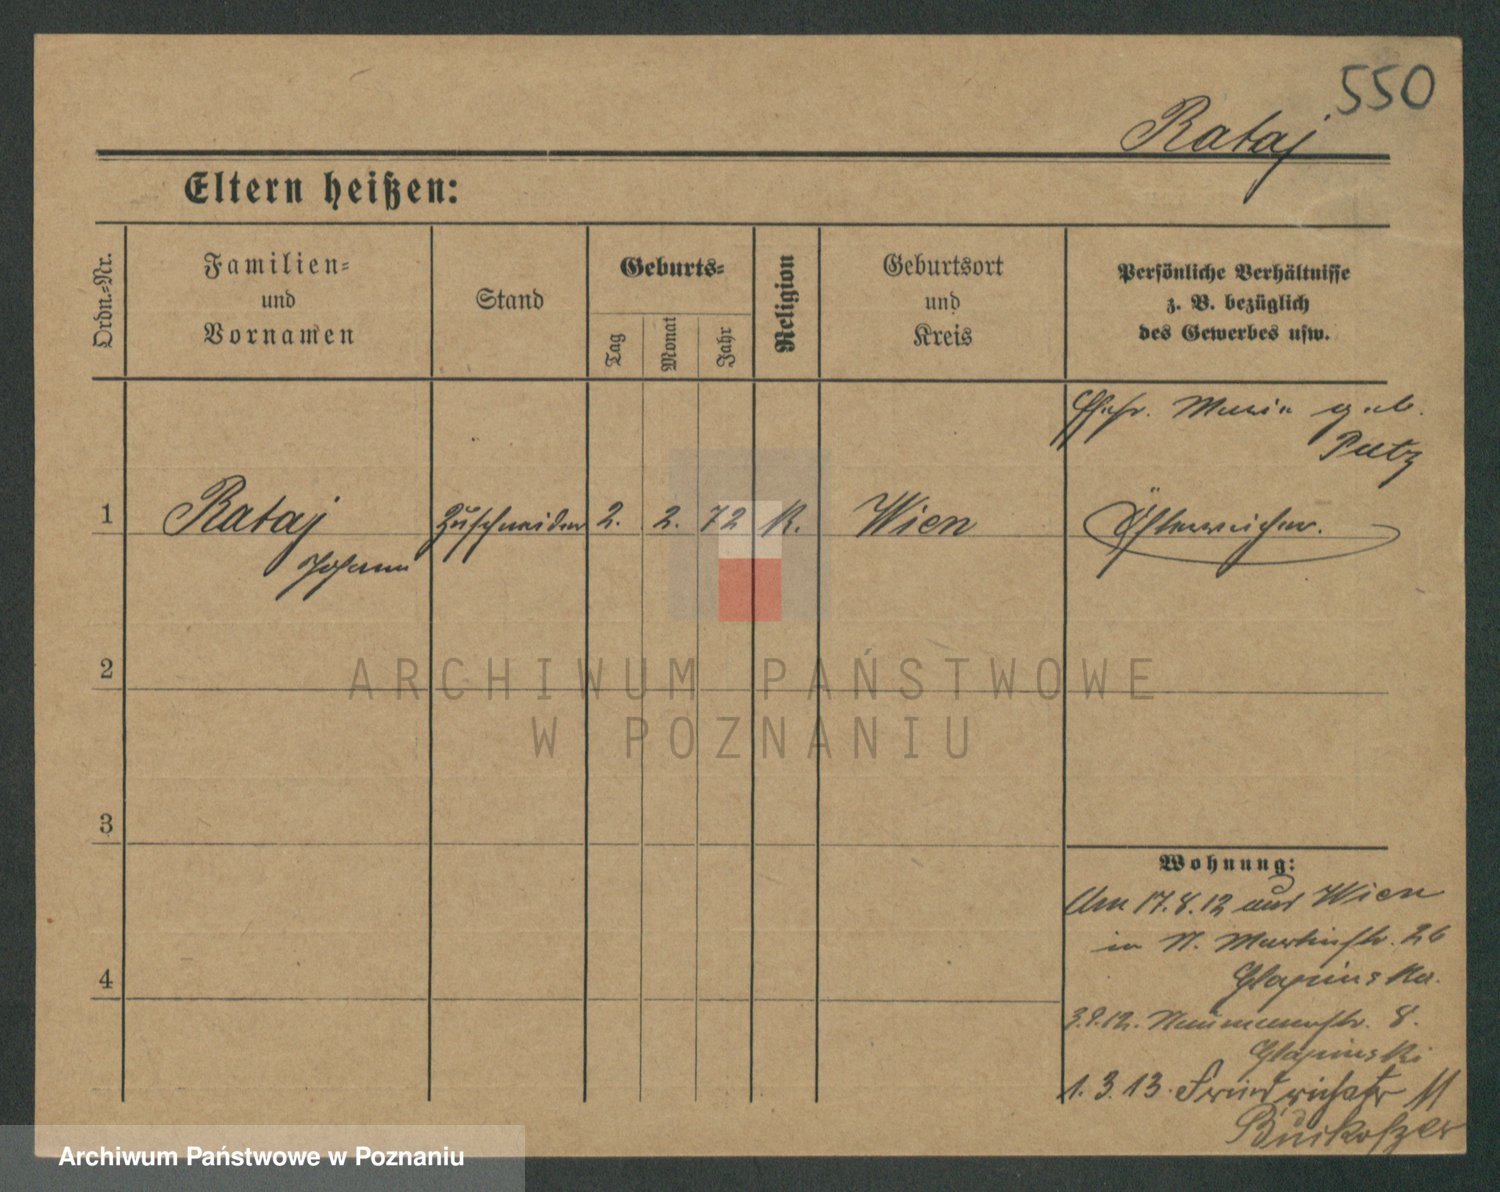 550
Rataj
Eltern heißen:
Ordn.-Nr.
Familien-
und
Vornamen
Stand
Geburts-
Tag
Monat
Jahr
Religion
Geburtsort
und
Kreis
Persönliche Verhältnisse
z. B. bezüglich
des Gewerbes usw.
Ehefr. Maria geb.
Putz
1 Rataj Zuschneider 2. 2. 72 K. Wien Österreicher.
Johann
2
3
4
Wohnung:
Am 17.8.12 aus Wien
in St. Martinstr. 26
Glapinska.
3.9.12. Naumannstr. 8.
Glapinski
1.3.13. 11
ARCHIWUM PAŃSTWOWE
W POZNANIU
Archiwum Państwowe w Poznaniu